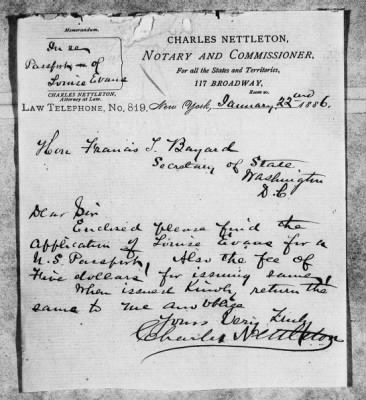 Memorandum.
In re
Passport of
Louise Evans
CHARLES NETTLETON,
Attorney at Law.
LAW TELEPHONE, NO. 819.
CHARLES NETTLETON,
NOTARY AND COMMISSIONER,
For all the States and Territories,
117 BROADWAY,
New York, January 22nd 1886.
Hon Francis T. Bayard
Secretary of State
Washington
D.C
Dear Sir
Enclosed please find the
application of Louise Evans for a
U.S Passport. Also the fee of
Five dollars for issuing same!
When issued Kindly return the
same to me and oblige
Yours Very Truly
Charles Nettleton